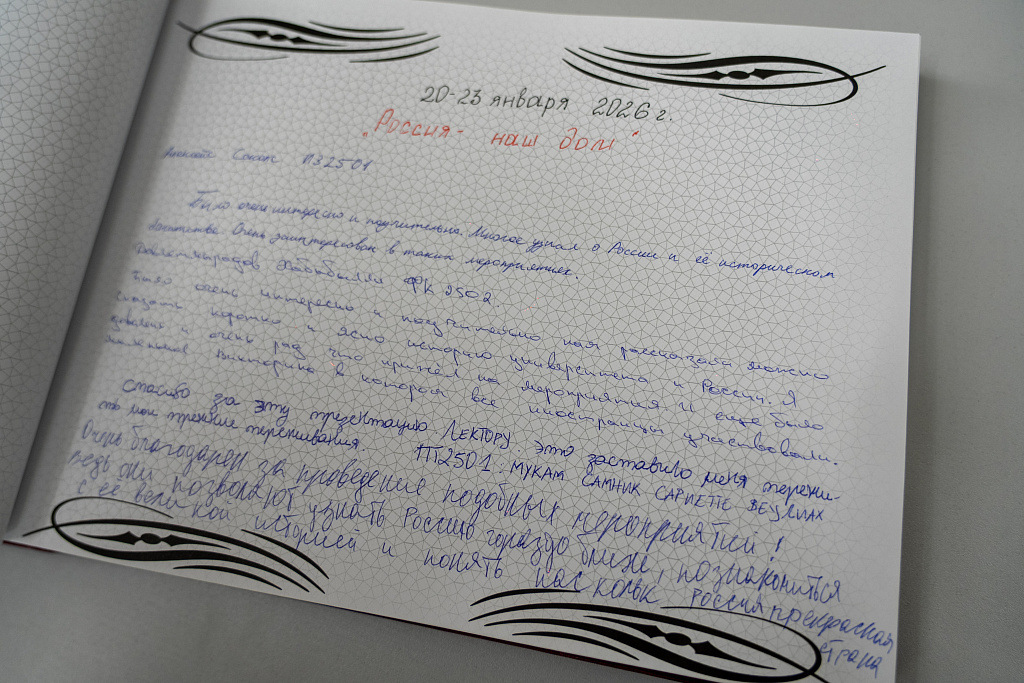 20-23 января 2026 г.
„Россия - наш дом“
ПЗ2501
Было очень интересно и поучительно. Многое узнал о России и её историческом
богатстве. Очень заинтересован в таких мероприятиях.
ФК 2502
Было очень интересно и поучительно нам рассказали можно
сказать коротко и ясно историю университета и России. Я
и очень рад что пришёл на мероприятия И ещё было
Викторина в которой все иностранцы участвовали.
Спасибо за эту презентацию ЛЕКТОРУ. это заставило меня пережи-
ть мои прежние переживания. ПТ2501: МУКАМ САМНИК САРИЕТТЕ
Очень благодарен за проведение подобных мероприятий!
ведь они позволяют узнать Россию гораздо ближе, познакомиться
с её великой историей и понять насколько Россия прекрасная
страна